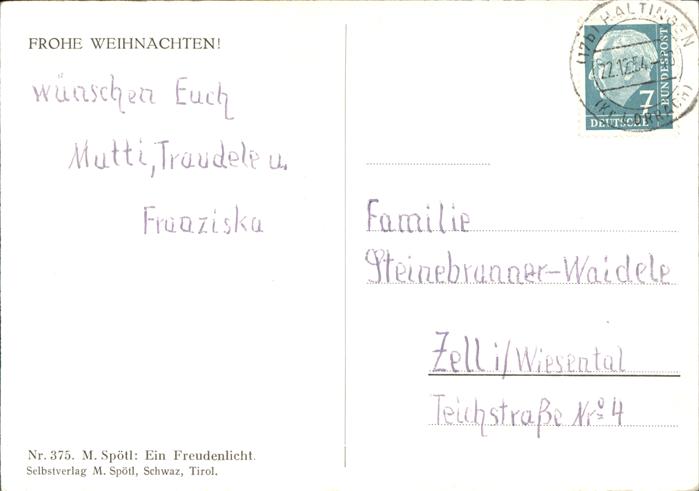 FROHE WEIHNACHTEN!
wünschen Euch
Mutti, Traudele u.
Franziska
Nr. 375. M. Spötl: Ein Freudenlicht.
Selbstverlag M. Spötl, Schwaz, Tirol.
(17b) HALTINGEN
22.12.54
(Kr. LÖRRACH)
7
DEUTSCHE
BUNDESPOST
Familie
Steinebrunner-Waidele
Zell i/Wiesental
Teichstraße Nro 4